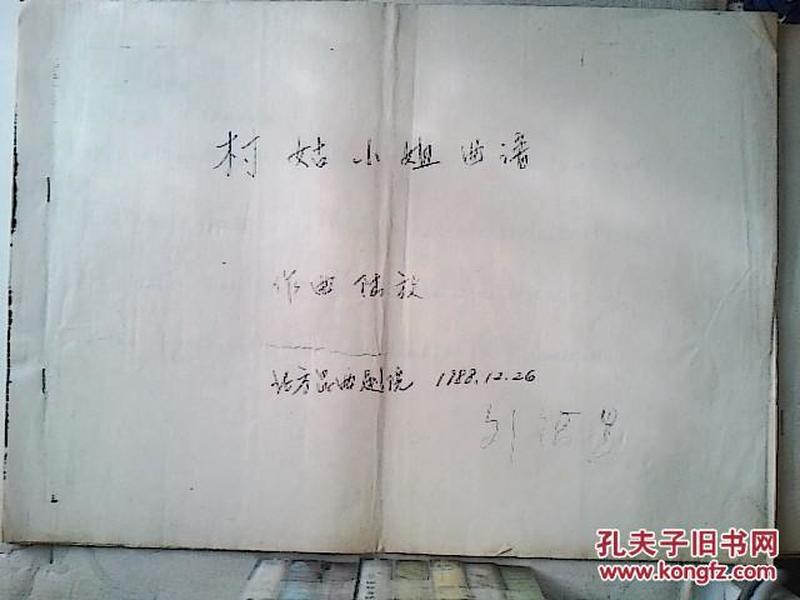 村姑小姐曲谱
作曲 陆放
北方昆曲剧院 1988.12.26
孔夫子旧书网
www.kongfz.com